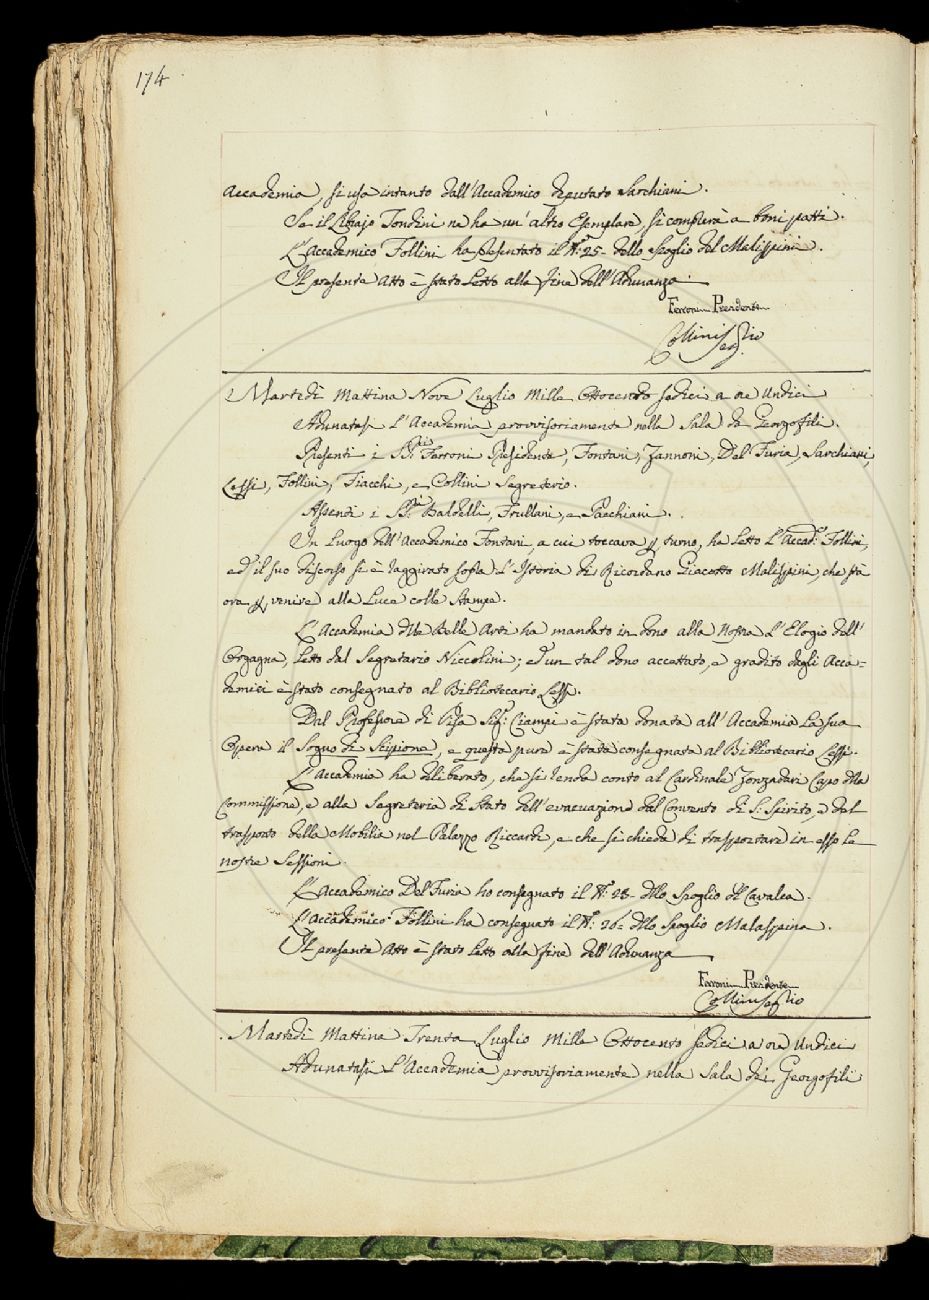 174
Accademia, si usa intanto dall'Accademico deputato Sarchiani.
Se il Librajo Tondini ne ha un'altro Esemplare, si comprerà a boni patti.
L'Accademico Follini ha presentato il N.° 25. dello spoglio del Malispini.
Il presente Atto è stato Letto alla fine dell'Adunanza
Ferroni Presidente
Collini Segrio
Martedì Mattina Nove Luglio Mille Ottocento sedici a ore Undici
Adunatasi L'Accademia provvisoriamente nella Sala de Georgofili.
Presenti i SS.ri Ferroni Presidente, Fontani, Zannoni, Del Furia, Sarchiani,
Lessi, Follini, Fiacchi, e Collini Segretario.
Assenti i SS.ri Baldelli, Frullani, e Sarchiani.
In Luogo dell'Accademico Fontani, a cui toccava p turno, ha Letto L'Accad.° Follini,
ed il suo discorso si è raggirato sopra L'Istoria di Ricordano Giacotto Malispini, che stà
ora p venire alla Luce colle Stampe.
L'Accademia delle Belle Arti ha mandato in dono alla Nostra L'Elogio dell'
Orgagna, Letto dal Segretario Niccolini; ed un tal dono accettato, e gradito dagli Acca=
demici è stato consegnato al Bibliotecario Lessi.
Dal Professore di Pisa Sig.r Ciampi è stata donata all'Accademia La sua
Opera il Sogno di Scipione, e questa pure è stata consegnata al Bibliotecario Lessi.
L'Accademia ha deliberato, che si renda conto al Cardinale Zonzadari Capo della
Commissione, e alla Segreteria di Stato dell'evacuazione del Convento di S. Spirito, e del
trasporto della Mobilia nel Palazzo Riccardi, e che si chieda di trasportare in esso Le
nostre Sessioni.
L'Accademico Del Furia ha consegnato il N.° 28. dello Spoglio del Cavalca.
L'Accademico Follini ha consegnato il N.° 26. dello Spoglio Malaspina.
Il presente Atto è stato Letto alla fine dell'Adunanza
Ferroni Presidente
Collini Segrio
Martedì Mattina Trenta Luglio Mille Ottocento sedici a ore Undici
Adunatasi L'Accademia provvisoriamente nella Sala dei Georgofili